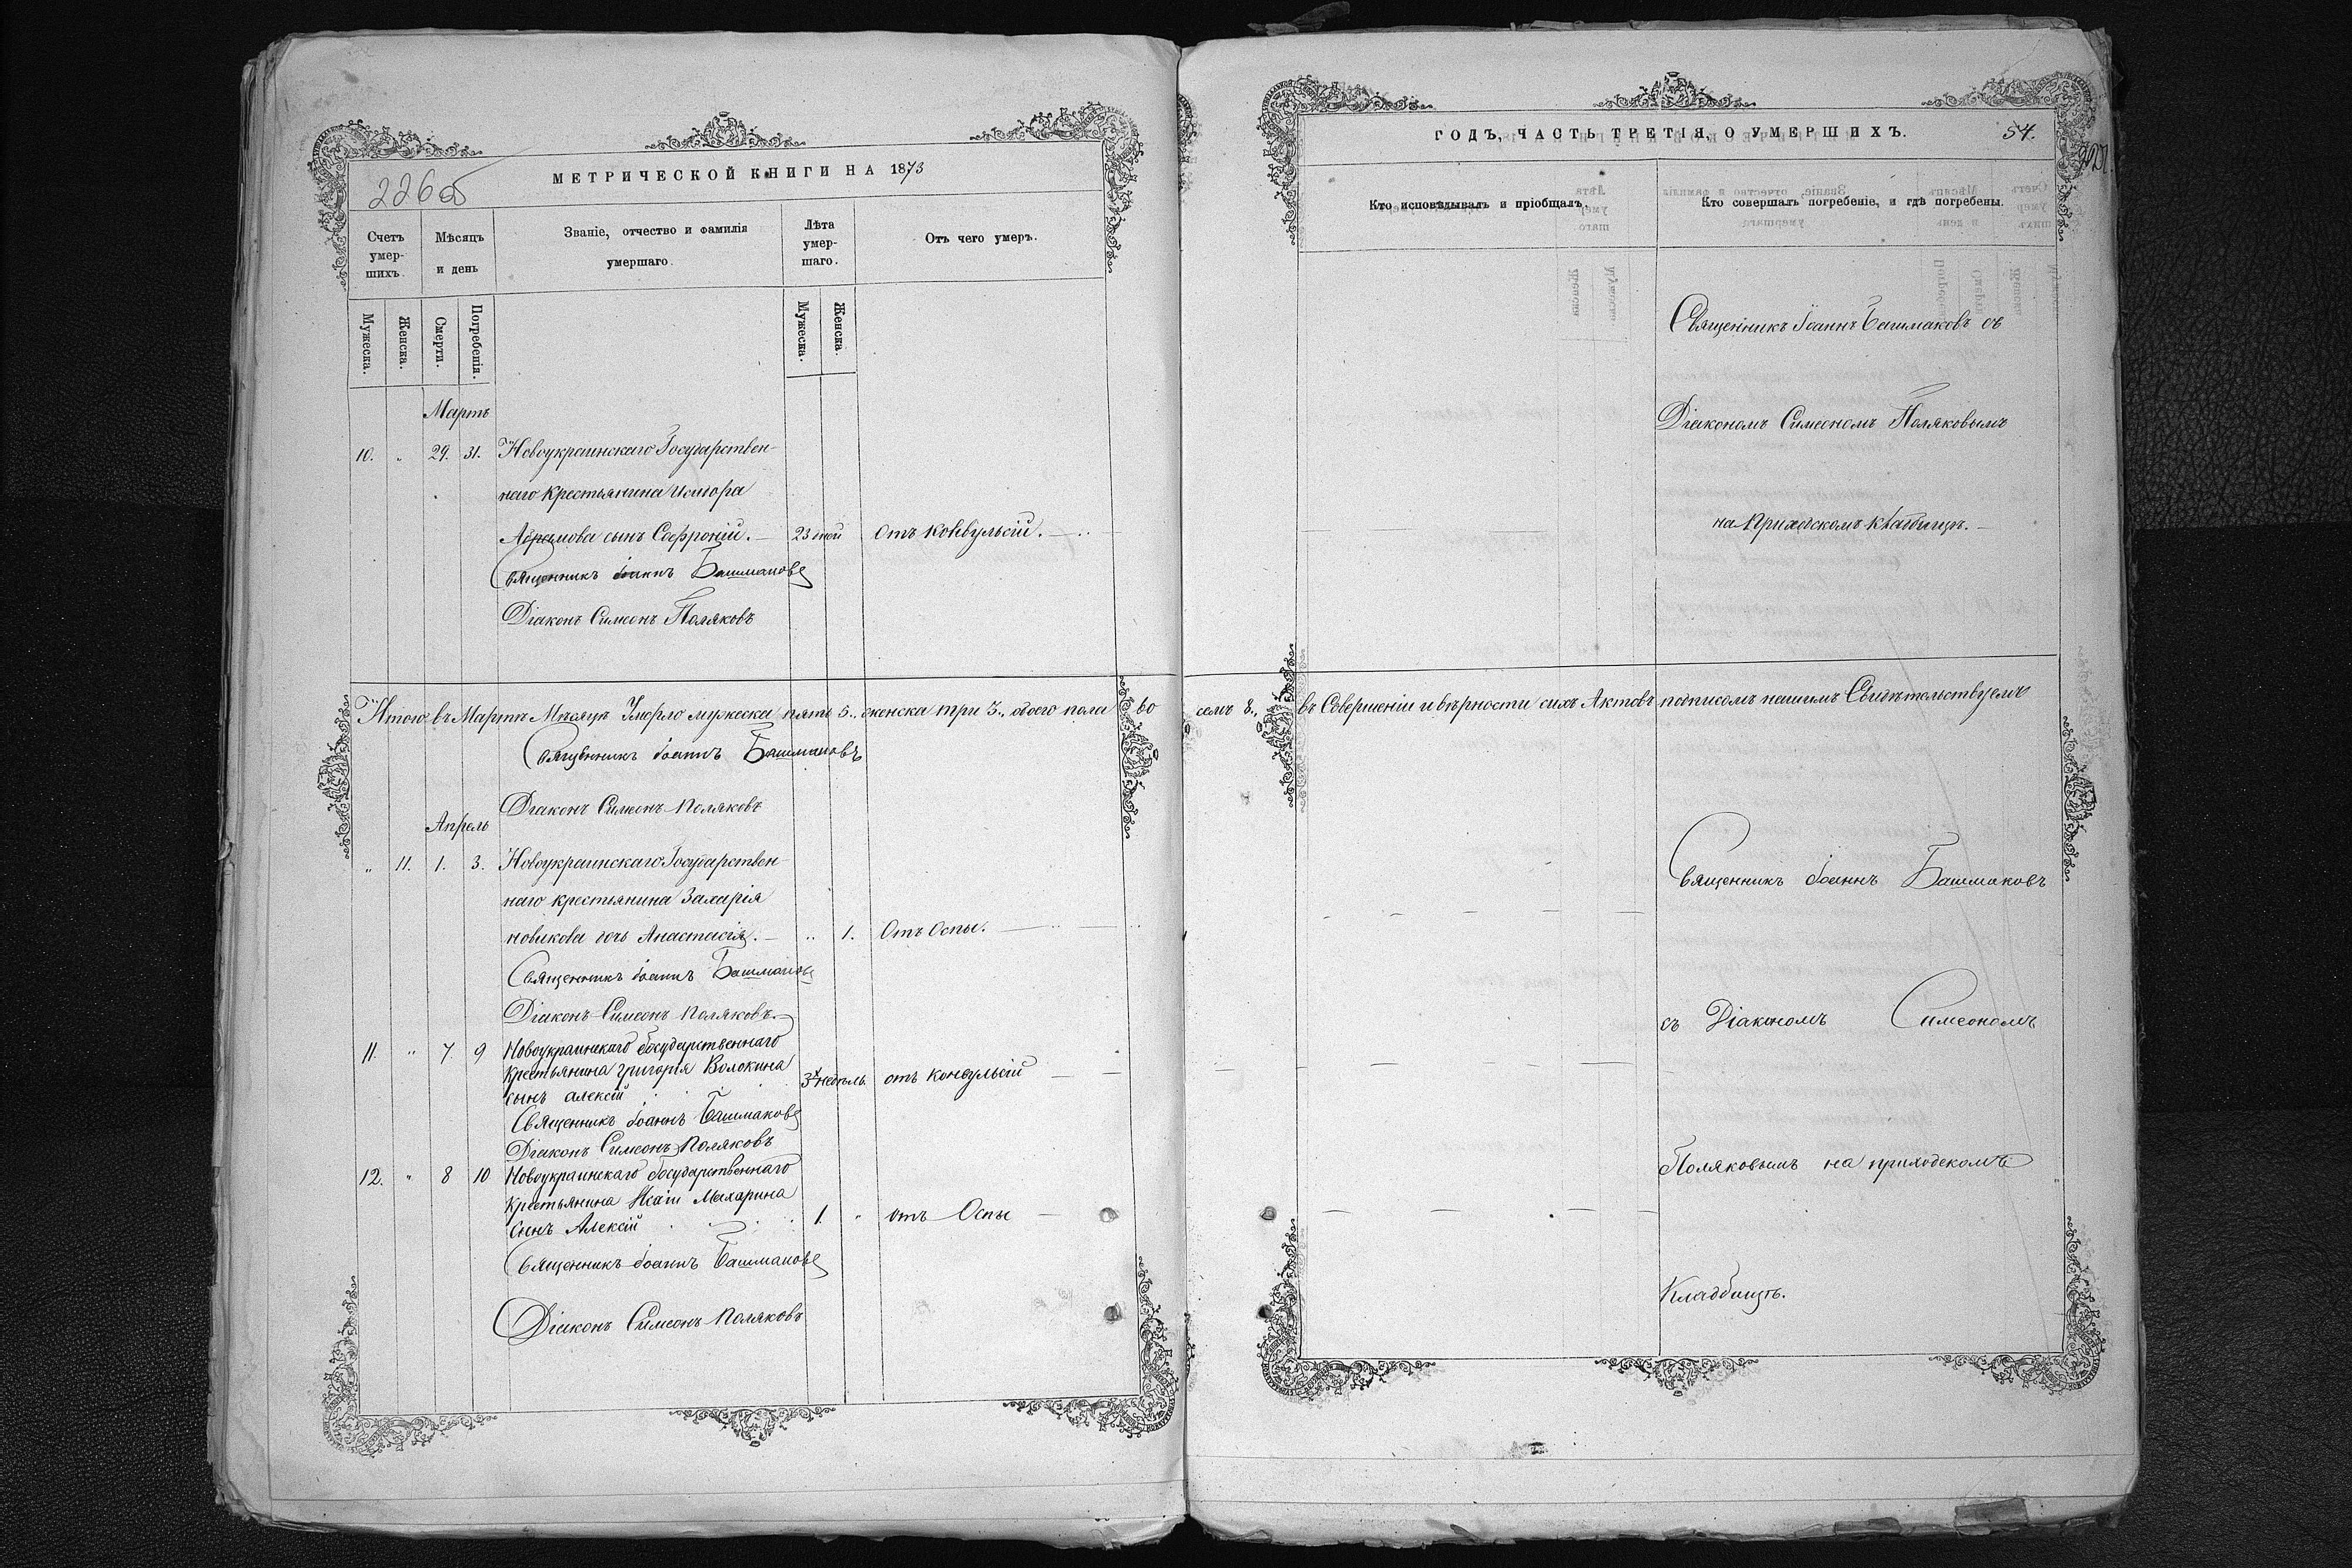 226об
МЕТРИЧЕСКОЙ КНИГИ НА 1873
Счетъ умер-шихъ.
Мѣсяцъ и день
Званіе, отчество и фамилія умершаго.
Лѣта умер-шаго.
Отъ чего умеръ.
Мужеска.
Женска.
Смерти.
Погребенія.
Мужеска.
Женска.
Мартъ
10. " 29. 31. Новоукраинскаго Государствен-
наго крестьянина Исидора
Абрамова сынъ Софроній. — 23 дней Отъ конвульсій.
Священникъ Іоаннъ Башмаковъ
Діаконъ Симеонъ Поляковъ
Итого въ Мартѣ Мѣсяцѣ Умерло мужеска пять 5., женска три 3., обоего пола во
Священникъ Іоаннъ Башмаковъ
Діаконъ Симеонъ Поляковъ
Апрель
" 11. 1. 3. Новоукраинскаго Государствен-
наго крестьянина Захарія
Новикова дочь Анастасія. — " 1. Отъ Оспы.
Священникъ Іоаннъ Башмаковъ
Діаконъ Симеонъ Поляковъ.
11. " 7. 9 Новоукраинскаго Государственнаго
Крестьянина Григорія Волокина
сынъ Алексій 3х недѣль. отъ конвульсій
Священникъ Іоаннъ Башмаковъ
Діаконъ Симеонъ Поляковъ
12. " 8 10 Новоукраинскаго Государственнаго
Крестьянина Махарина
сынъ Алексій 1. " отъ Оспы
Священникъ Іоаннъ Башмаковъ
Діаконъ Симеонъ Поляковъ
ГОДЪ, ЧАСТЬ ТРЕТІЯ, О УМЕРШИХЪ.
54.
Кто исповѣдывалъ и пріобщалъ.
Кто совершалъ погребеніе, и гдѣ погребены.
Священникъ Іоаннъ Башмаковъ съ
Діакономъ Симеономъ Поляковымъ
на Приходскомъ кладбищѣ. —
семь 8., въ Совершеніи и вѣрности сихъ Актовъ подписомъ нашимъ Свидѣтельствуемъ
Священникъ Іоаннъ Башмаковъ
съ Діакономъ Симеономъ
Поляковымъ на приходскомъ
Кладбищѣ.